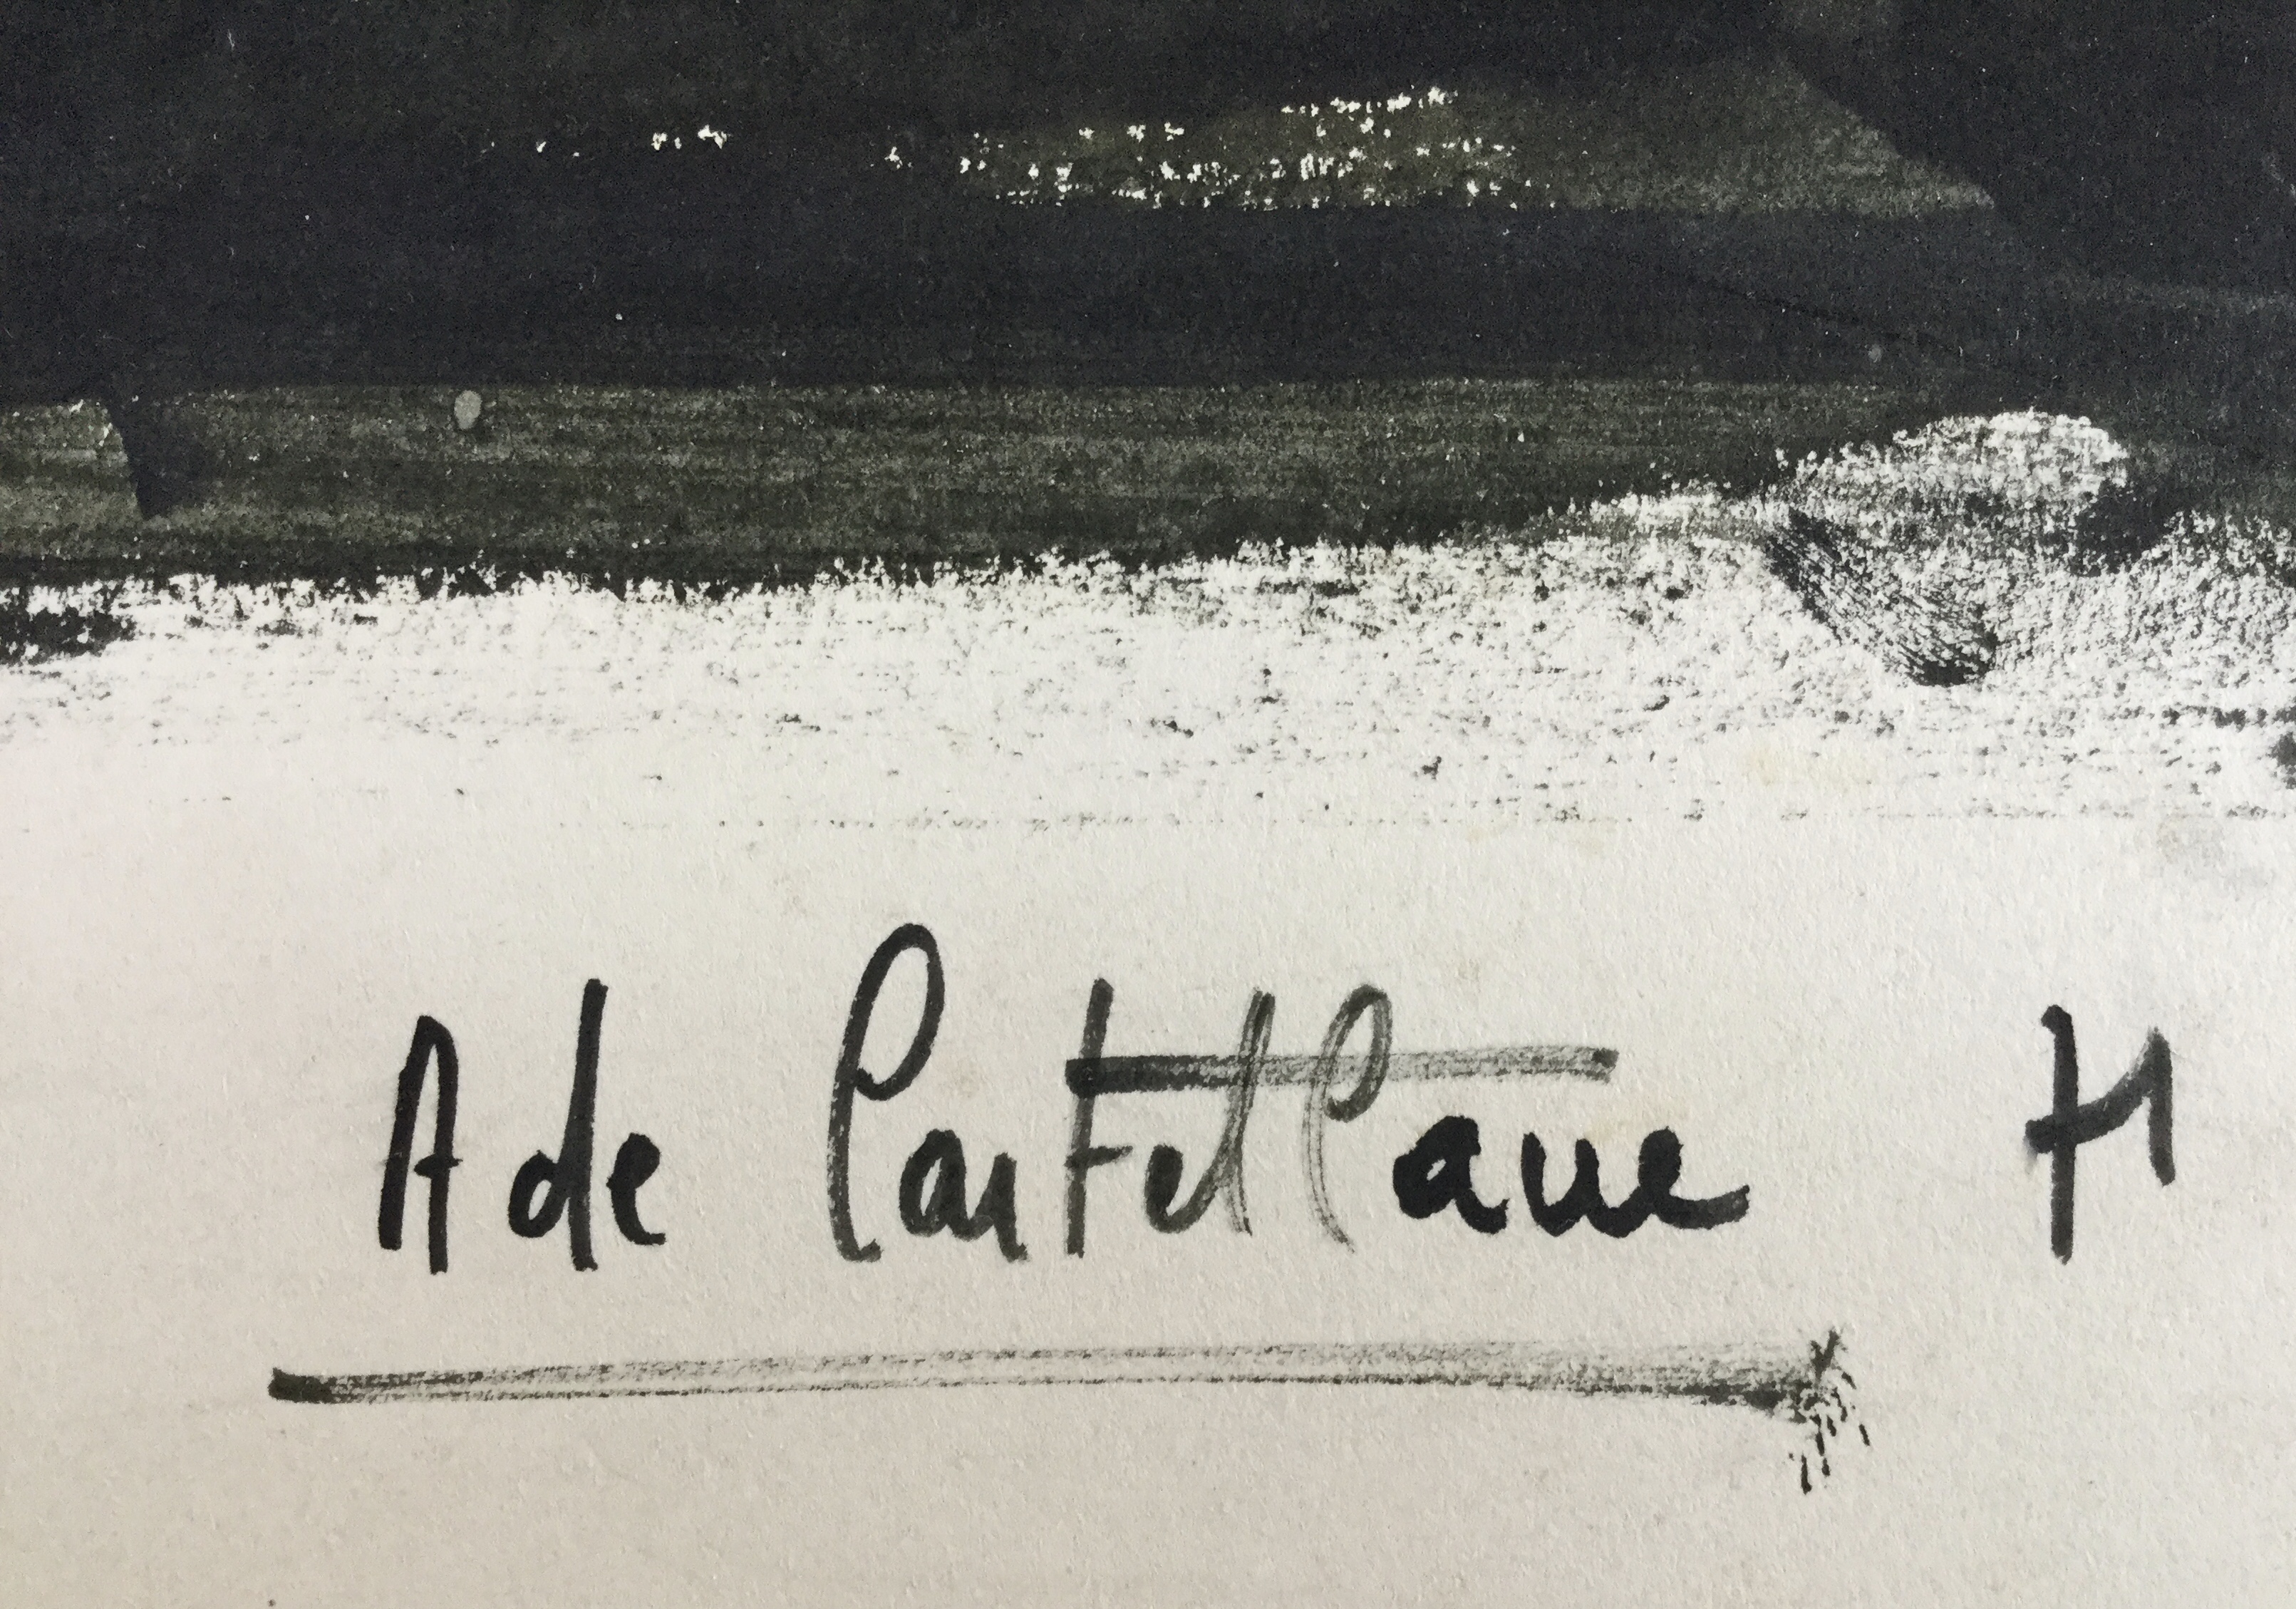 A de Castellane 71